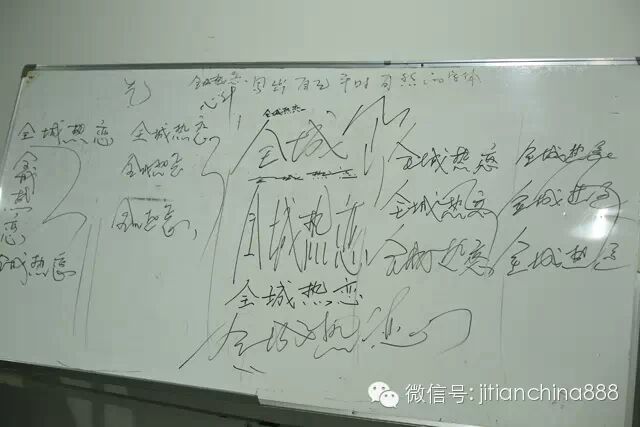 全城热恋
心斗
写些自己平时自然的字体
全城热恋
全城热恋
全城热恋
全城热恋
全城热恋
全城热恋
全城热恋
全城
全城热恋
全城热恋
全城热恋
全城热恋
全城热恋
全城热恋
全城热恋
全城热恋
全城热恋
全城热恋
微信号: jitianchina888